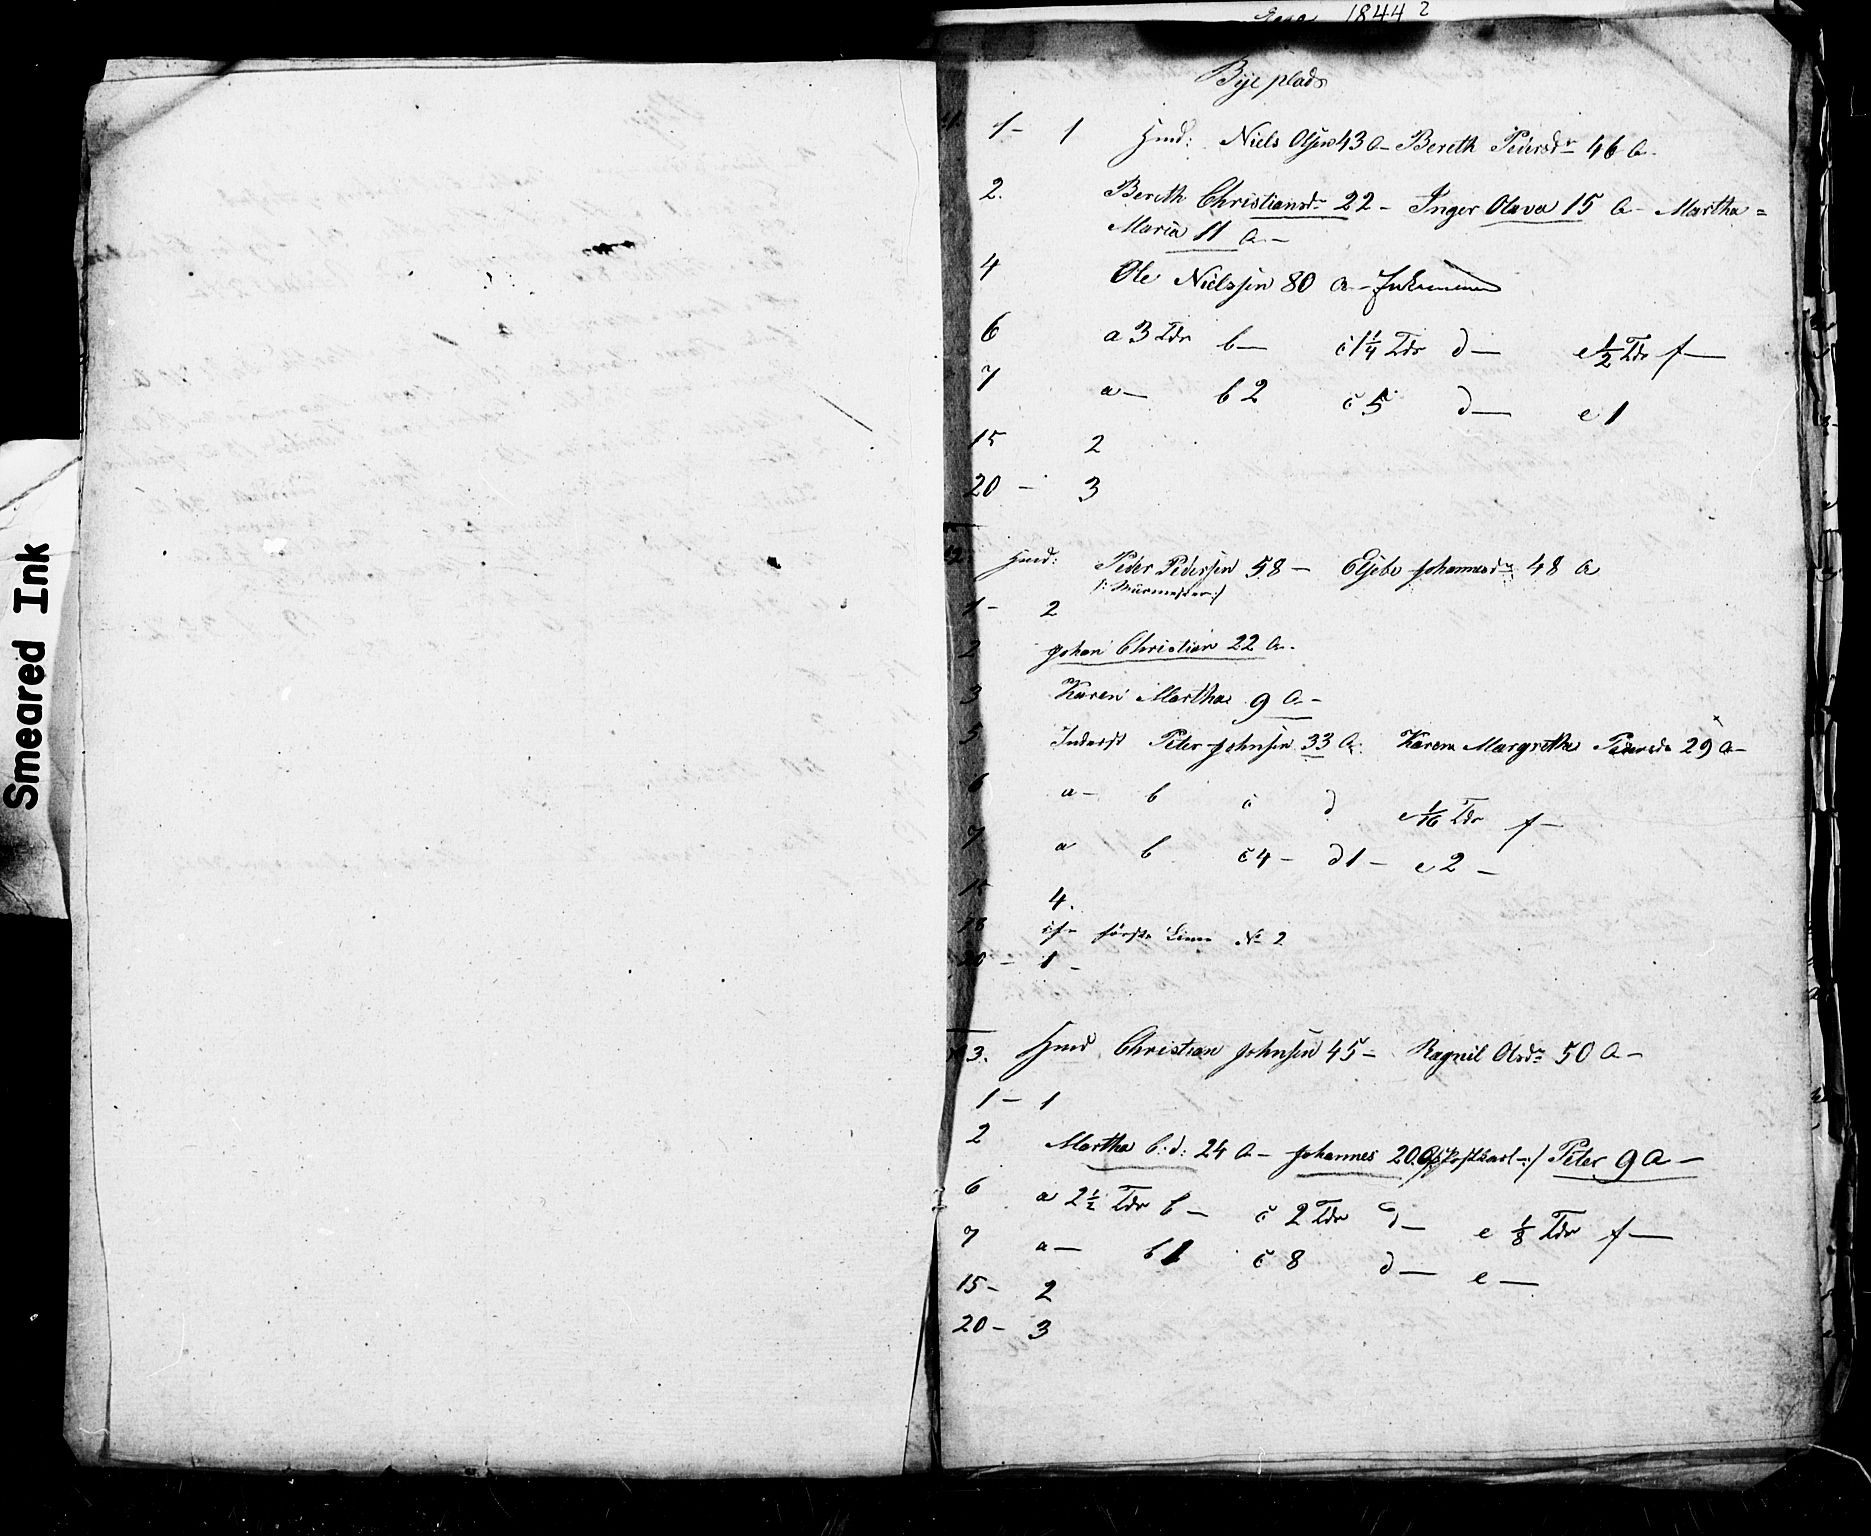 Smeared Ink
1844 ?
Bye plads
1 - 1 Hmd: Niels Olsen 43 A - Bereth Pedersdr 46 A.
2. Bereth Christiansdr 22 - Inger Olava 15 A - Martha =
Maria 11 A. -
4 Ole Nielssen 80 A -
6 a 3 Tdr b — c 1 1/4 Tdr d — e 1/2 Tdr f —
7 a — b 2 c 5 d — e 1
15 2
20 - 3
Hmd: Peder Pedersen 58 - Elsebe Johannesdr 48 A
/: Mürmester :/
1 - 2
2 Johan Christian 22 A.
3 Karen Martha 9 A -
5 Inderst Peter Johnsen 33 A. Karen Margrethe Pedersdr 29 A -
6 a - b c d e 1/16 Tdr f —
7 a b c 4 - d 1 - e 2 -
15 4.
18 første Linie No 2
20 - 1 -
13. Hmd Christian Johnsen 45 - Ragnil Olsdr 50 A -
1 - 1
2 Martha C: d: 24 A - Johannes 20 A /: Postkarl :/ Peter 9 A -
6 a 2 1/2 Tdr b — c 2 Tdr d — e 1/8 Tdr f —
7 a — b 1 c 8 d — e —
15 - 2
20 - 3